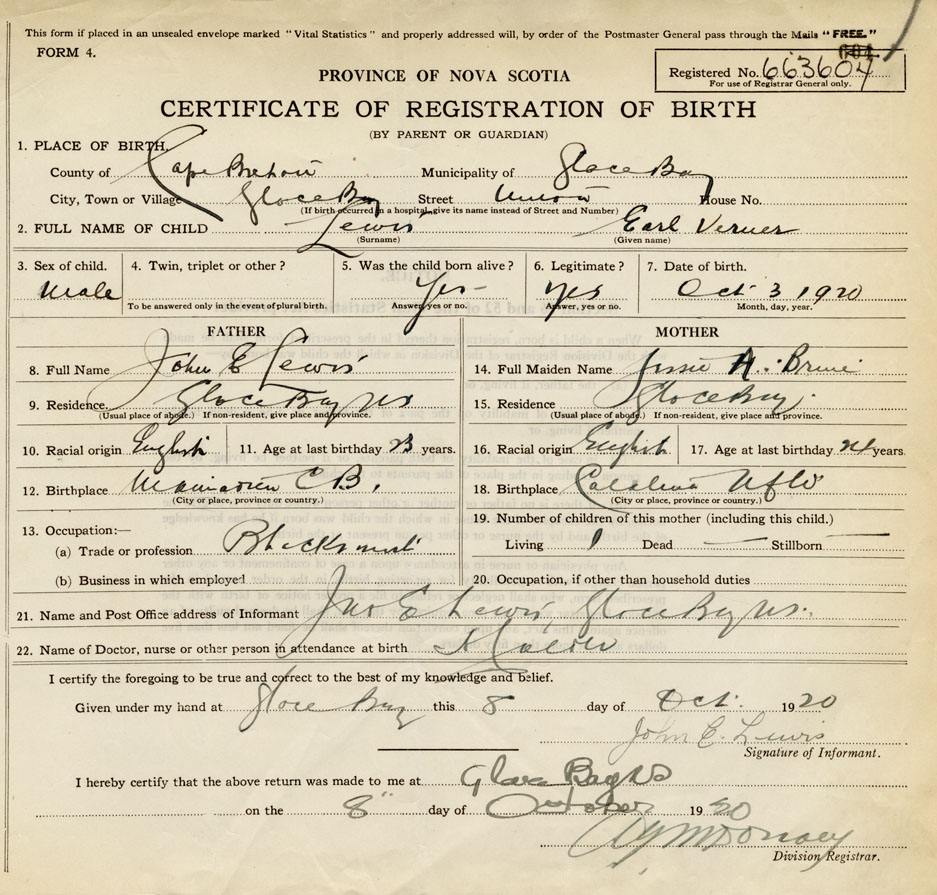 This form if placed in an unsealed envelope marked "Vital Statistics" and properly addressed will, by order of the Postmaster General pass through the Mails "FREE."
FORM 4.
Registered No. 663604
For use of Registrar General only.
PROVINCE OF NOVA SCOTIA
CERTIFICATE OF REGISTRATION OF BIRTH
(BY PARENT OR GUARDIAN)
1. PLACE OF BIRTH.
County of Cape Breton Municipality of Glace Bay
City, Town or Village Glace Bay Street Union House No.
(If birth occurred in a hospital, give its name instead of Street and Number)
2. FULL NAME OF CHILD Lewis Earl Verner
(Surname) (Given name)
3. Sex of child. 4. Twin, triplet or other? 5. Was the child born alive? 6. Legitimate? 7. Date of birth.
Male Yes- yes Oct 3 1920
To be answered only in the event of plural birth. Answer, yes or no. Answer, yes or no. Month, day, year.
FATHER
8. Full Name John E Lewis
9. Residence. Glace Bay NS
(Usual place of abode.) If non-resident, give place and province.
10. Racial origin English 11. Age at last birthday 23 years.
12. Birthplace C.B.
(City or place, province or country.)
13. Occupation:—
(a) Trade or profession Blacksmith
(b) Business in which employed
MOTHER
14. Full Maiden Name Jessie A.
15. Residence Glace Bay.
(Usual place of abode.) If non-resident, give place and province.
16. Racial origin English 17. Age at last birthday 24 years.
18. Birthplace Catalina Nfld
(City or place, province or country.)
19. Number of children of this mother (including this child.)
Living 1 Dead — Stillborn —
20. Occupation, if other than household duties
21. Name and Post Office address of Informant Jno E Lewis, Glace Bay NS.
22. Name of Doctor, nurse or other person in attendance at birth
I certify the foregoing to be true and correct to the best of my knowledge and belief.
Given under my hand at Glace Bay this 8 day of Oct. 1920
John E. Lewis
Signature of Informant.
I hereby certify that the above return was made to me at Glace Bay NS
on the 8" day of October 1920
Division Registrar.